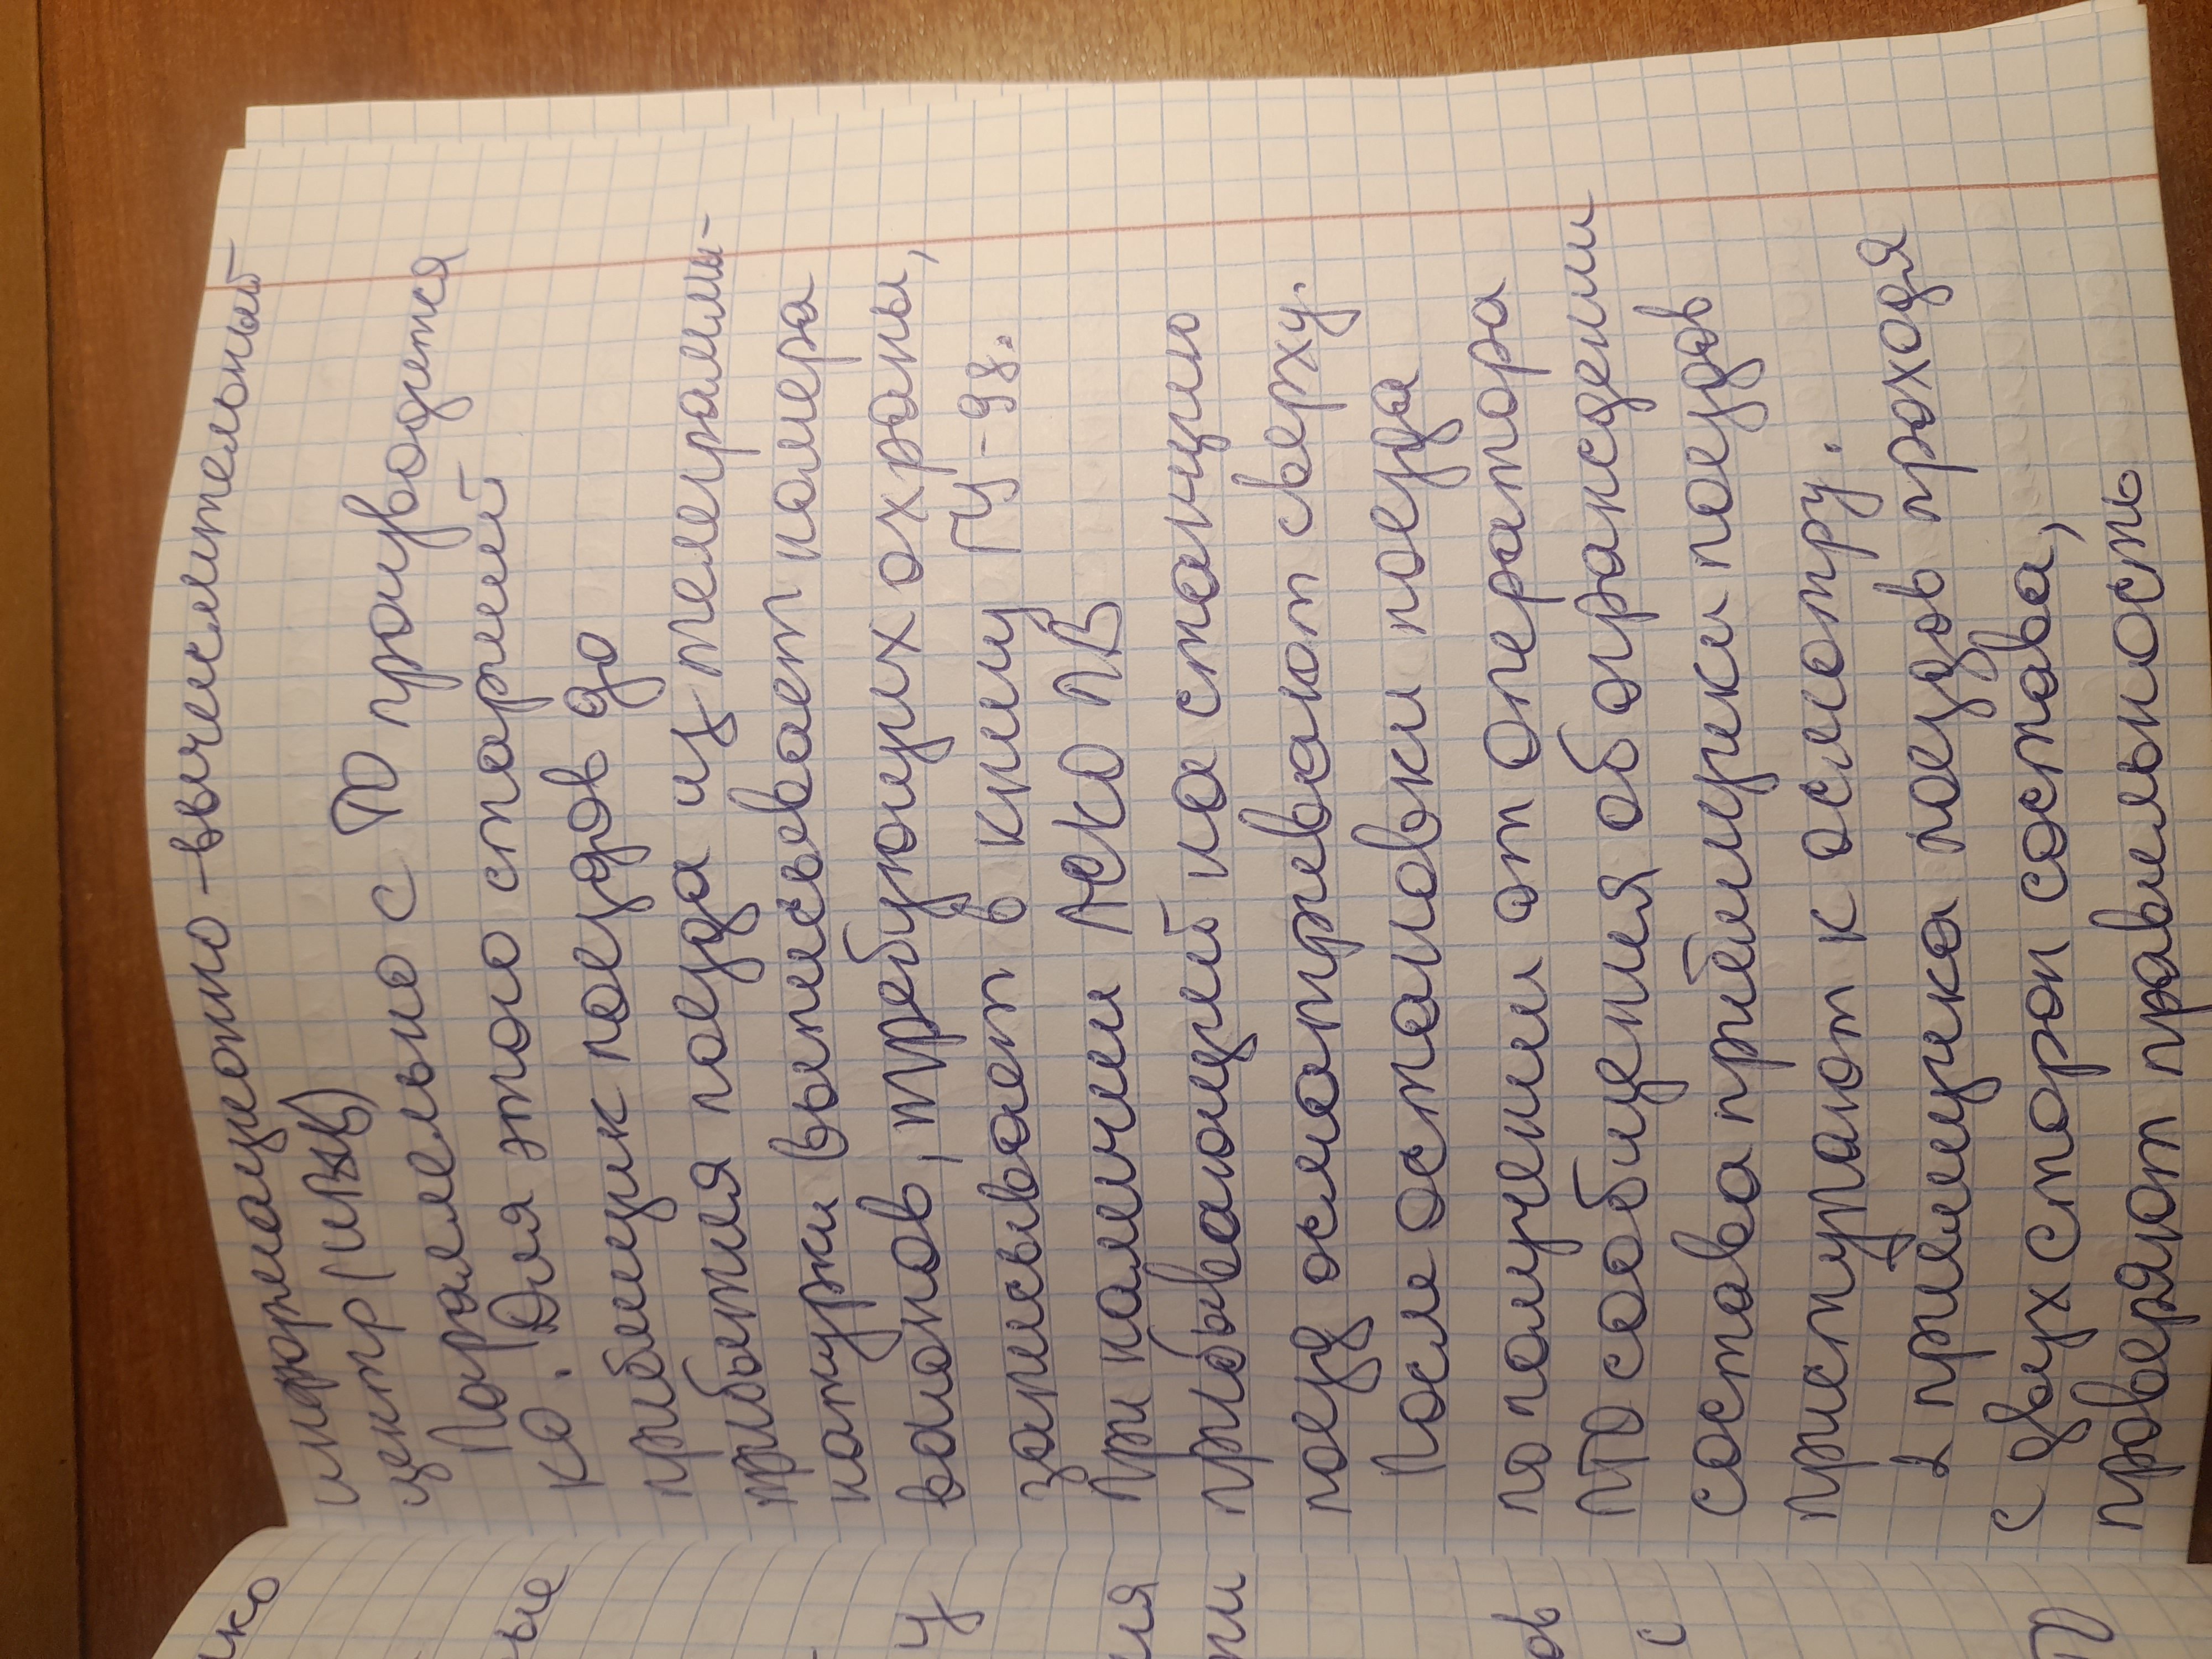 информационно-вычеслительный
центр (ИВЦ)
Паралельно с ТО производится
КО. Для этого старший
приёмщик поездов до
прибытия поезда из телеграммы-
натурки выписывает номера
вагонов, требующих охраны,
записывает в книгу ГУ-98.
При наличии АСКО ПВ
прибывающий на станцию
поезд осматривают сверху.
После остановки поезда
по получении от оператора
ПТО сообщения об ограждении
состава приёмщики поездов
приступают к осмотру.
2 приемщика поездов проходя
с двух сторон состава,
проверяют правильность
ико
ые
у
ия
ти
ов
с